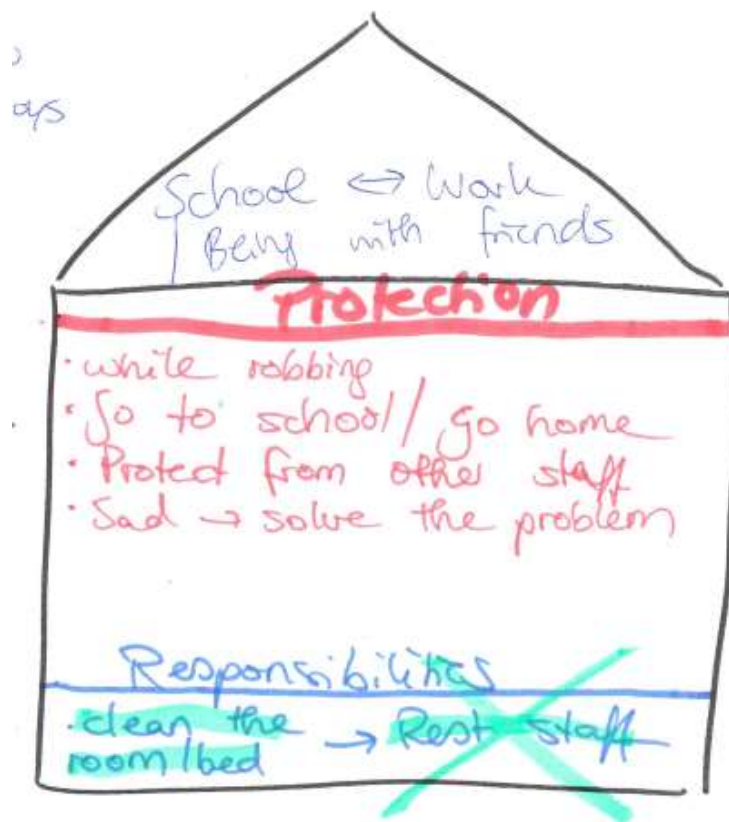 ays
School ⇔ Work
Being with friends
Protection
· while robbing
· Go to school / go home
· Protect from other staff
· Sad → solve the problem
Responsibilities
· clean the → Rest staff
room/bed